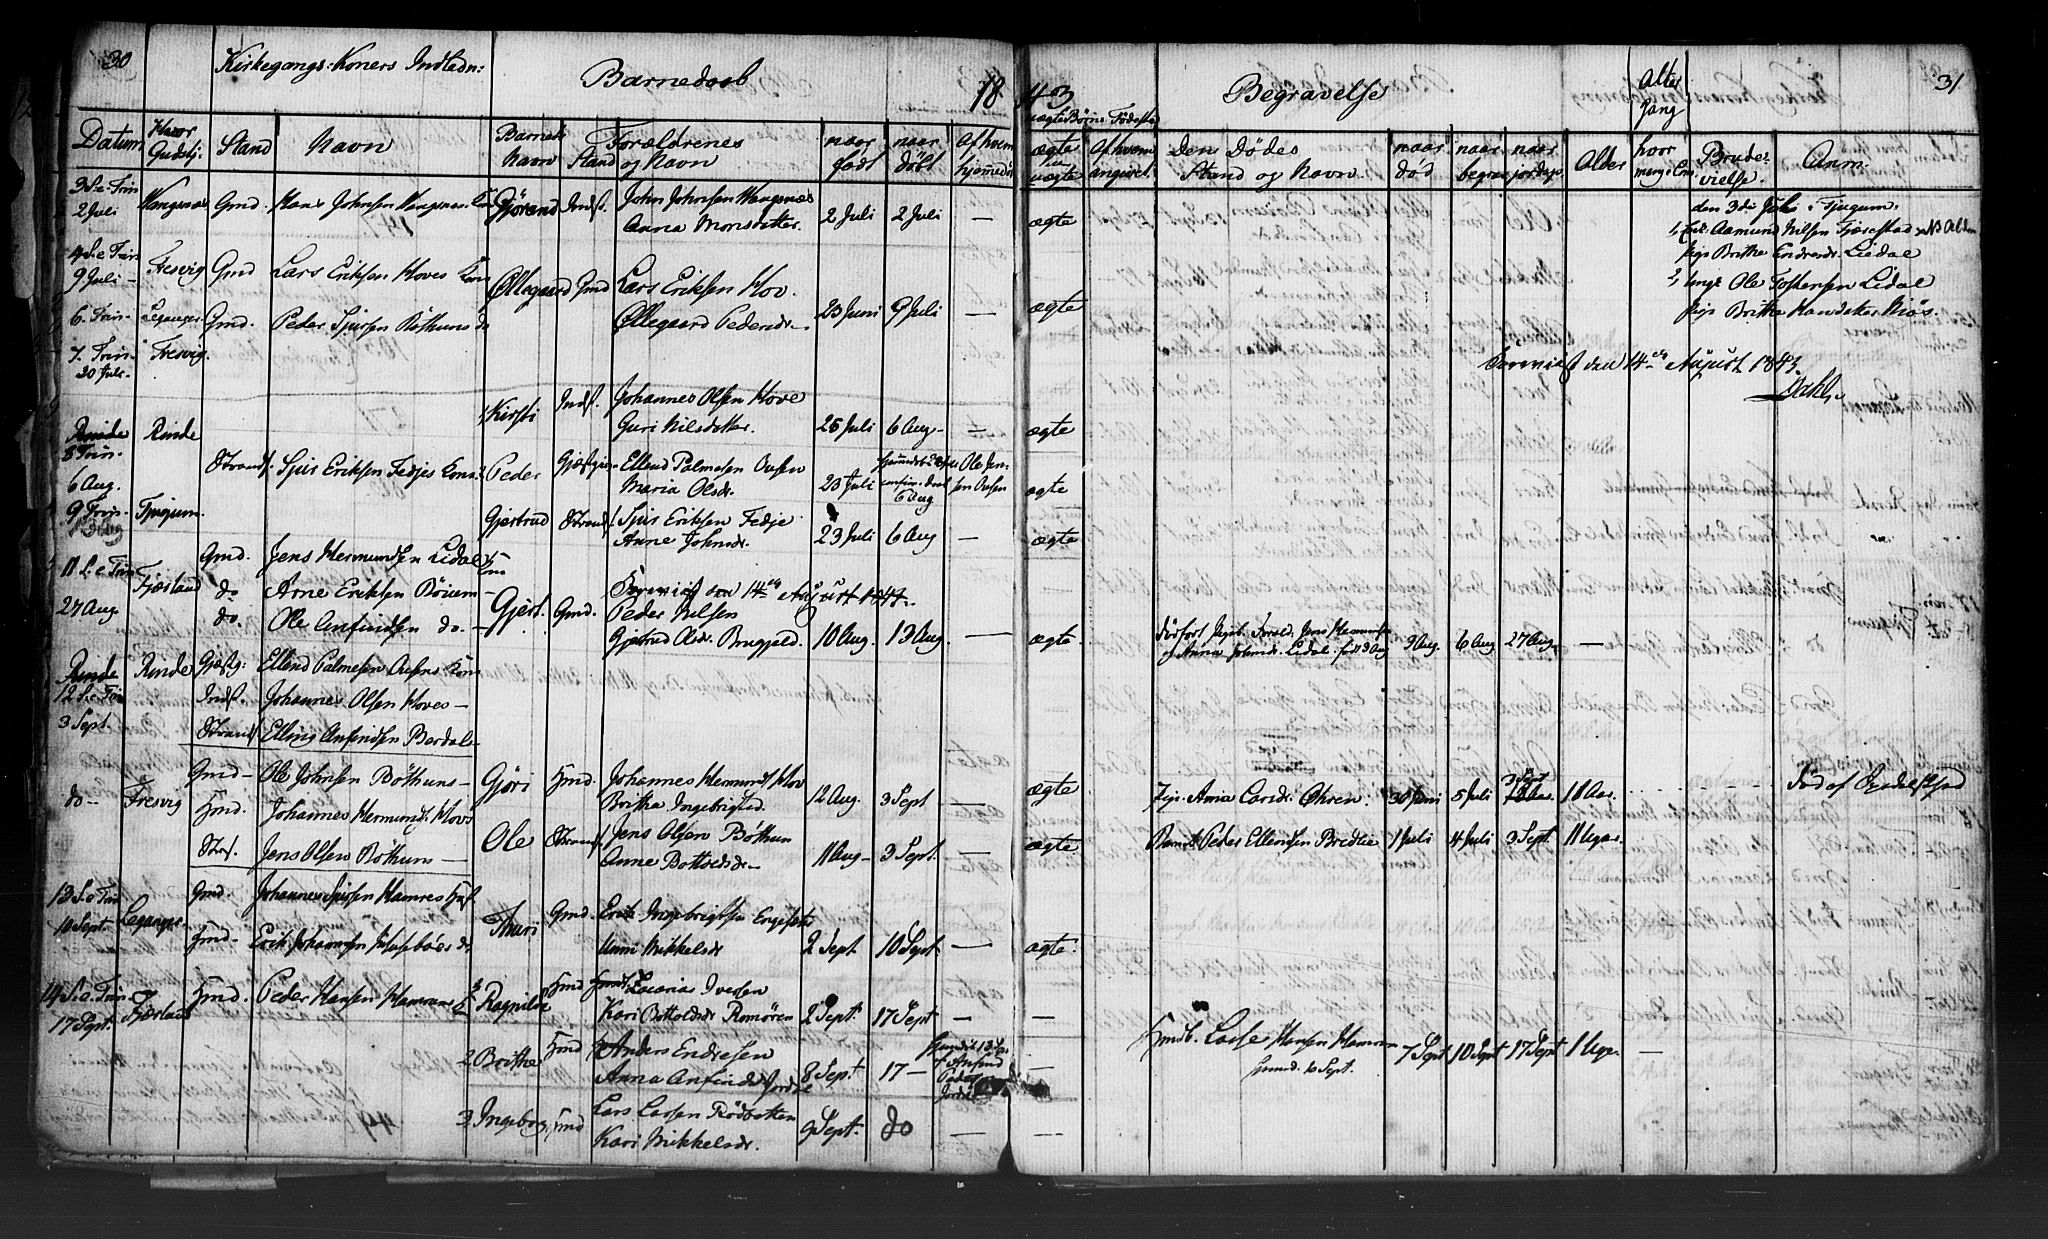 30
Kirkegangs-Koners Indledn:
Barnedaab
18
43
Begravelse
Alter
gang
31
uægte Børns Fødested
Datum
Hvor
Gudstj:
Stand
Navn
Barnets
Navn
Forældrenes
Stand og Navn
naar
født
naar
døbt
af hvem
hjemmedøbt
ægte
uægte
af hvem
angivet
Den Dødes
Stand og Navn
naar
død
naar
begrav
naar
jordap
Alder
hvor
mange
Brude-
vielse
Anm.
3 S. e Trin
2 Juli
Vangsnæs
Gmd. Hans Johnsen Vangsnes Kone
Gjørand
Indst.
John Johnsen Vangsnæs
Anna Monsdatter
2 Juli
2 Juli
—
ægte
den 3die Juli i Tjugum.
1, Aamund Nilsen Fjærestad
Pige Brithe Endresdr. Lidal
2, Ungk Ole Tostensen Lidal
Pige Brithe Njøs.
4 S. e Trin
9 Juli
Fresvig
Gmd
Lars Eriksen Hoves Kone
Øllegaard
Gmd
Lars Eriksen Hov.
Øllegaard Pedersdr.
23 Juni
9 Juli
—
ægte
6. Trin.
Leganger
Gmd.
Peder Sjursen Bøthuns do
7. Trin
20 Juli
Fresvig.
den 14de August 1843.
Dahl.
1, Kirsti
Indst.
Johannes Olsen Hove
Guri Nilsdatter.
25 Juli
6 Aug
—
ægte
Rinde
8 Trin.
6 Aug.
Rinde
Strands. Sjur Eriksen Fedjes Kone
2 Peder
Gjæstgiv.
Ellend Palmesen Ousen
Maria Olsdr.
20 Juli
6 Aug
Ole Jen-
sen Ousen
ægte
9 Trin.
13 Aug
Tjugum
Gjertrud
Strands.
Sjur Eriksen Fedje
Anne Johnsdr.
23 Juli
6 Aug
—
ægte
11 S. e Trin
27 Aug
Fjærland
Gmd. Jens Hermundsen Lidal Kone
do Arne Eriksen Bøium —
do. Ole Anfindsen do. —
Gjert.
Gmd.
den 14de August 1843.
Peder Nilsen
Gjertrud Olsdr. Brugjeld
10 Aug.
13 Aug
—
ægte
Dødfødt Pigeb. Foræld. Jens Hermunds.
og Anna Johnsdr. Lidal
3 Aug.
6 Aug
27 Aug
—
Rinde
12 S. e Trin
3 Sept.
Rinde
Gjæstg: Ellend Palmesen Ousens Kone
Indst. Johannes Olsen Hoves —
Strands. Elling Anfindsen Berdals
do —
Fresvig
Gmd — Ole Johnsen Bøthuns —
Hmd. Johannes Hermunds. Hovs
Strs. Jens Olsen Bøthuns —
Gjøri
Hmd.
Johannes Hermunds. Hov
Britha Ingebrigtsd.
12 Aug.
3 Sept
—
ægte
Pige. Anna Larsdr. Øhren:
30 Juni
5 Juli
3 Sept
18 Aar.
Død af
Ole
Strands.
Jens Olsen Bøthun
Anne Botholfsdr.
11 Aug
3 Sept.
—
ægte.
Barnet Peder Ellendsen Bredlie
1 Juli
4 Juli
3 Sept.
11 Uger.
13 S. e Trin
10 Sept.
Leganger
Gmd. Johannes Sjursen Hamres
Hmd — Erik Johannesen do
Thuri
Gmd.
Erik Ingebrigtsen Engesæter
Unni Mikkelsdr
2 Sept
10 Sept.
—
ægte.
14 S. e Trin
17 Sept.
Fjærland
Hmd. Peder Hansen Hamrum K
1 Ragnilde
Hmd
Zacarias Iversen
Kari Botholdsdr Romøren
2 Sept.
17 Sept
—
—
Hmdb. Lasse Hansen Hamrum
hjemmd. 10 Sept.
7 Sept
10 Sept
17 Sept
1 Uge.
—
2 Brithe
Hmd
Anders Endresen
Anna Anfindsdr Jordal
8 Sept
17 —
Anfind
Peders
Jordal
—
3 Ingeborg
Hmd
Lars Larsen Rødbotten
Kari Mikkelsdr.
9 Sept.
do
—
—